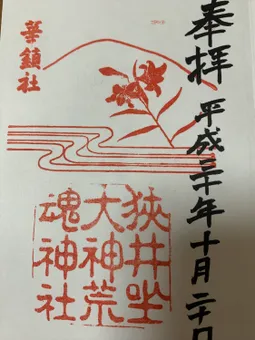 奉拝
平成三十年十月二十日
華鎮社
狭井坐
大神荒
魂神社